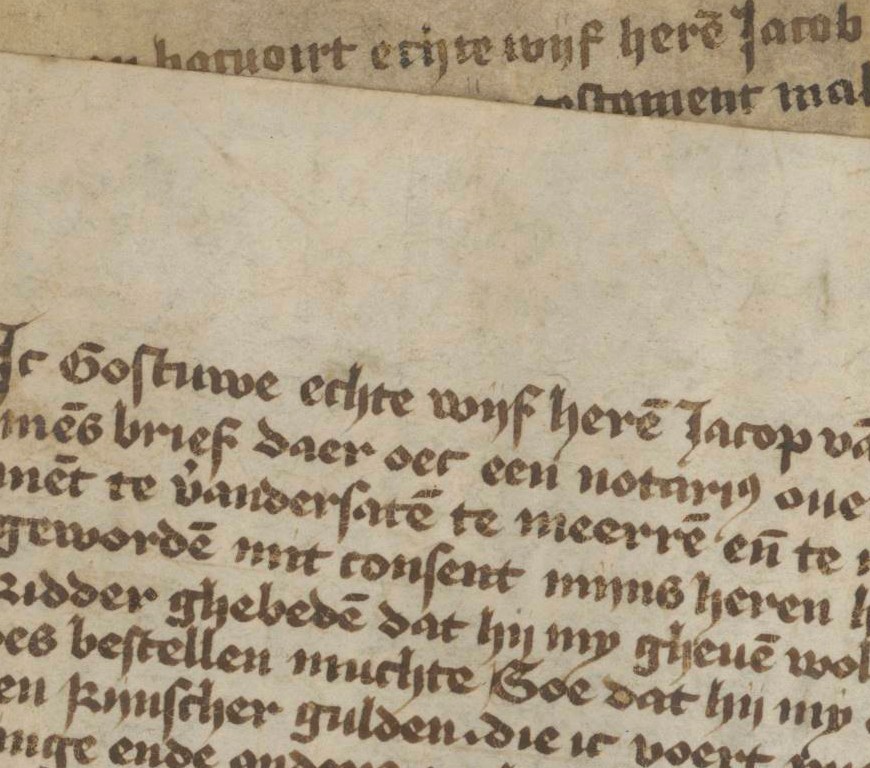 hacuoirt echte wijf herē Jacob
testament mak
Ic Gostuwe echte wijf herē Jacop vā
mēs brief daer oec een notariꝰ oue
mēt te v̓andersatē te meerrē en̄ te
gewordē mit consent mijns heren h
Ridder ghebedē dat hij my gheuē wol
es bestellen muchte Soe dat hij my
en Rijnscher gulden. die ic voert
nige ende